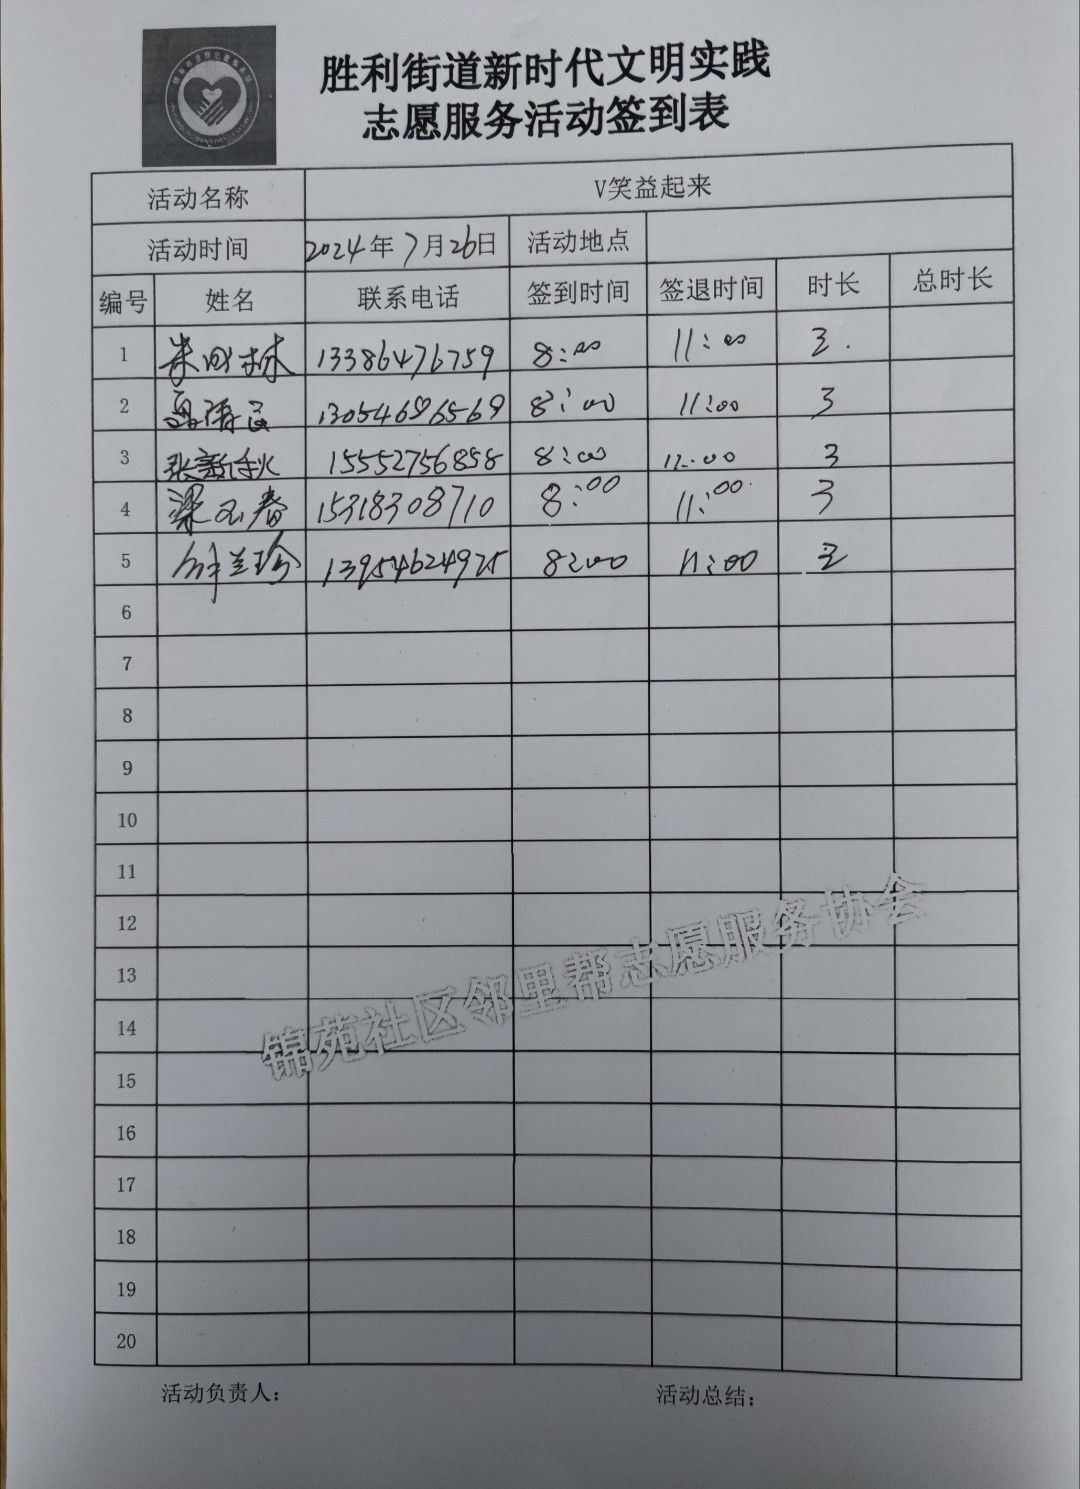 胜利街道新时代文明实践
志愿服务活动签到表
活动名称 V笑益起来
活动时间 2024年7月26日 活动地点
编号 姓名 联系电话 签到时间 签退时间 时长 总时长
1 13386476759 8:00 11:00 3.
2 13054696569 8:00 11:00 3
3 张新秋 15552756858 8:00 11:00 3
4 梁玉春 15318308710 8:00 11:00 3
5 兰珍 13954624925 8:00 11:00 3
6
7
8
9
10
11
12
13
14
15
16
17
18
19
20
锦苑社区邻里帮志愿服务协会
活动负责人: 活动总结: